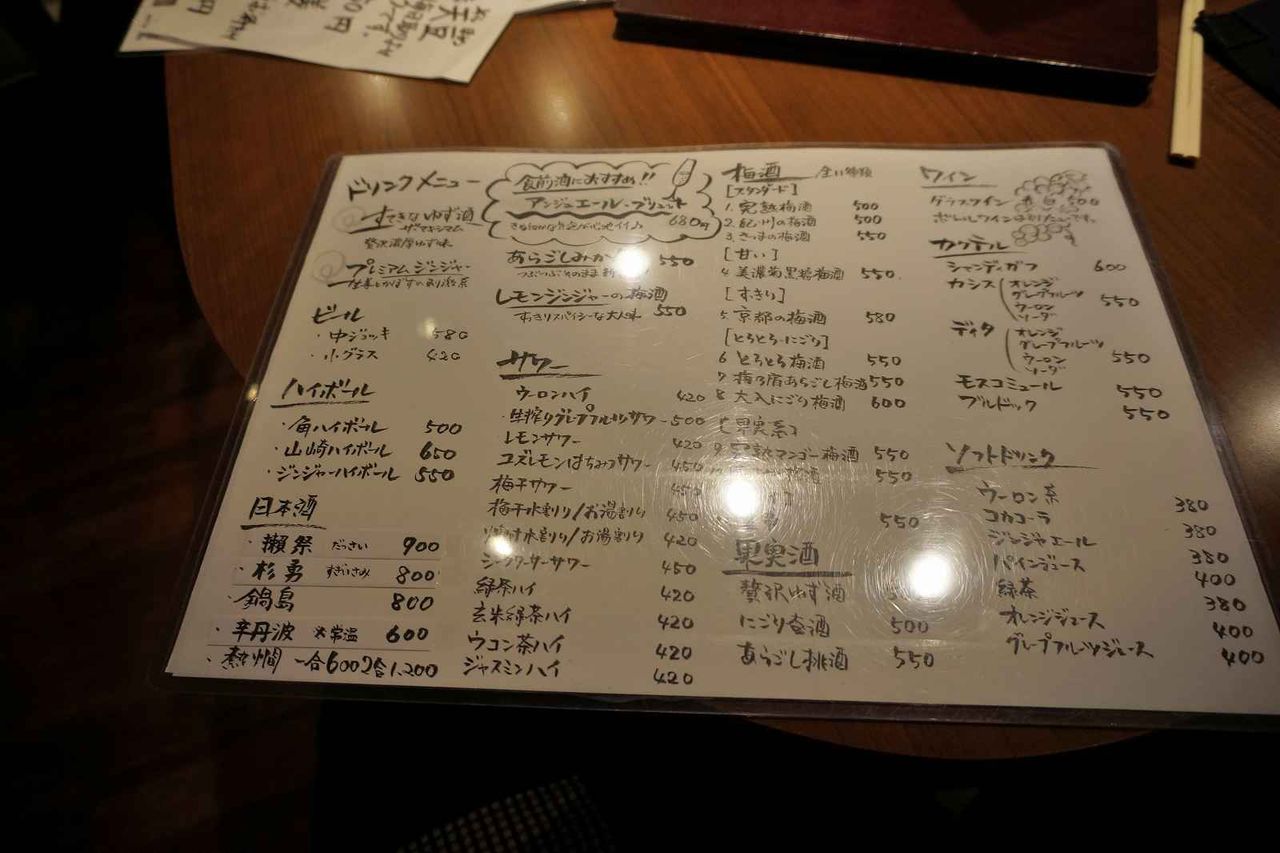 ドリンクメニュー
すてきなゆず酒
ザ・マキシマム
贅沢濃厚ゆず味
プレミアムジンジャー
ビール
・中ジョッキ 580
・小グラス 420
ハイボール
・角ハイボール 500
・山崎ハイボール 650
・ジンジャーハイボール 550
日本酒
・獺祭 だっさい 900
・杉勇 すぎいさみ 800
・鍋島 800
・辛丹波 ※常温 600
・熱燗 一合600 2合1,200
食前酒におすすめ!!
アンジュエール・ブリュット
680円
あらごしみかん 550
つぶつぶそのまま
レモンジンジャーの梅酒
すっきりスパイシーな大人味 550
サワー
ウーロンハイ 420
・生搾りグレープフルーツサワー 500
レモンサワー 420
ユズレモンはちみつサワー 450
梅干サワー 450
梅干水割り/お湯割り 450
水割り/お湯割り 420
シークワーサーサワー 450
緑茶ハイ 420
玄米緑茶ハイ 420
ウコン茶ハイ 420
ジャスミンハイ 420
梅酒 全11種類
[スタンダード]
1. 完熟梅酒 500
2. 紀州の梅酒 500
3. さつまの梅酒 550
[甘い]
4. 美濃菊黒糖梅酒 550
[すっきり]
5. 京都の梅酒 580
[とろとろ・にごり]
6 とろとろ梅酒 550
7 梅乃宿あらごし梅酒 550
8 大入にごり梅酒 600
[果実系]
9 完熟マンゴー梅酒 550
梅酒 550
550
果実酒
贅沢ゆず酒
にごり杏酒 500
あらごし桃酒 550
ワイン
グラスワイン 赤・白 500
カクテル
シャンディガフ 600
カシス オレンジ
グレープフルーツ
ウーロン
ソーダ 550
ディタ オレンジ
グレープフルーツ
ウーロン
ソーダ 550
モスコミュール 550
ブルドック 550
ソフトドリンク
ウーロン茶 380
コカコーラ 380
ジンジャエール 380
パインジュース 400
緑茶 380
オレンジジュース 400
グレープフルーツジュース 400